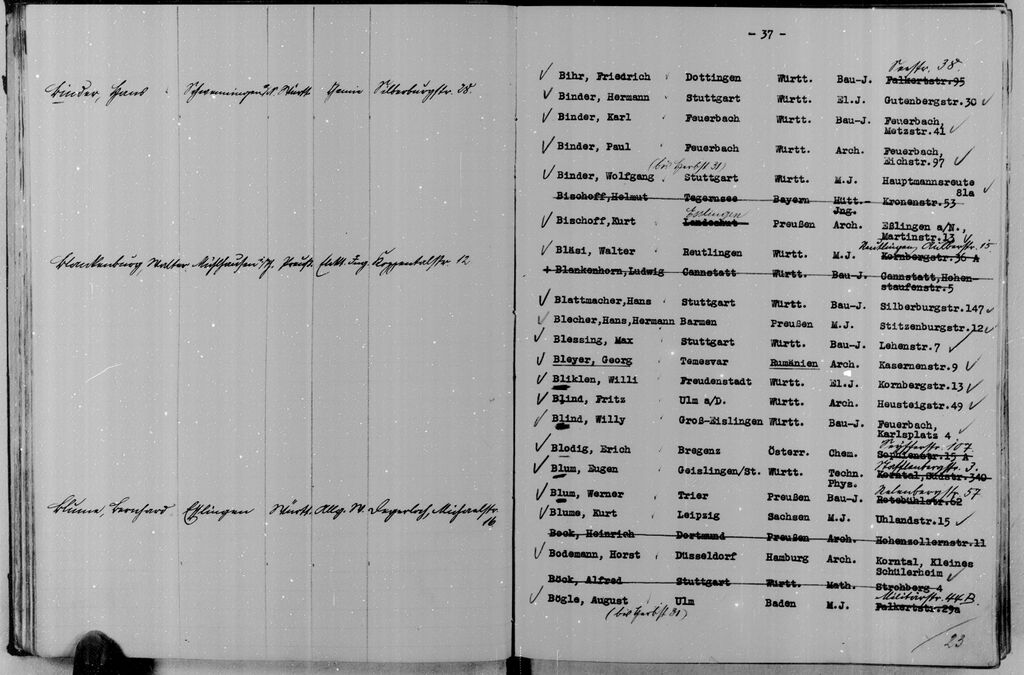 Binder, Hans Schwenningen a/N. Württ. Chemie Silberburgstr. 38.
Blankenburg, Walter Mühlhausen i/Th. Preuß. Elekt. Ing. Koppentalstr. 12
Blume, Bernhard Eßlingen Württ. Allg. W. Degerloch, Michaelstr.
16
- 37 -
Seestr. 38
✓ Bihr, Friedrich Dottingen Württ. Bau-J. Falkertstr.95
✓ Binder, Hermann Stuttgart Württ. El.J. Gutenbergstr.30 ✓
✓ Binder, Karl Feuerbach Württ. Bau-J. Feuerbach,
Metzstr.41 ✓
✓ Binder, Paul Feuerbach Württ. Arch. Feuerbach,
Eichstr.97 ✓
(bis Herbst 31)
✓ Binder, Wolfgang Stuttgart Württ. M.J. Hauptmannsreute
81a ✓
Bischoff,Helmut Tegernsee Bayern Hütt.- Kronenstr.53
Jng.
Esslingen
✓ Bischoff,Kurt Landeshut Preußen Arch. Eßlingen a/N.,
Martinstr.13 ✓
Reutlingen, 15
✓ Bläsi, Walter Reutlingen Württ. M.J. Kornbergstr.36 A
+ Blankenhorn,Ludwig Cannstatt Württ. Bau-J. Cannstatt,Hohen-
staufenstr.5
✓ Blattmacher,Hans Stuttgart Württ. Bau-J. Silberburgstr.147 ✓
✓ Blecher,Hans,Hermann Barmen Preußen M.J. Stitzenburgstr.12 ✓
✓ Blessing, Max Stuttgart Württ. Bau-J. Lehenstr.7 ✓
✓ Bleyer, Georg Temesvar Rumänien Arch. Kasernenstr.9 ✓
✓ Bliklen, Willi Freudenstadt Württ. El.J. Kornbergstr.13 ✓
✓ Blind, Fritz Ulm a/D. Württ. Arch. Heusteigstr.49 ✓
✓ Blind, Willy Groß-Eislingen Württ. Bau-J. Feuerbach,
Karlsplatz 4 ✓
Seyfferstr. 107
✓ Blodig, Erich Bregenz Österr. Chem. Sophienstr.15 A
Stafflenbergstr. 3.
✓ Blum, Eugen Geislingen/St. Württ. Techn. Korntal,Südstr.340
Phys.
Relenbergstr. 57
✓ Blum, Werner Trier Preußen Bau-J. Rotebühlstr.62
✓ Blume, Kurt Leipzig Sachsen M.J. Uhlandstr.15 ✓
Bock, Heinrich Dortmund Preußen Arch. Hohenzollernstr.11
✓ Bodemann, Horst Düsseldorf Hamburg Arch. Korntal, Kleines
Schülerheim ✓
Böck, Alfred Stuttgart Württ. Math. Strohberg 4
Militärstr. 44 B.
✓ Bögle, August Ulm Baden M.J. Falkertstr.29a
(bis Herbst 31)
23